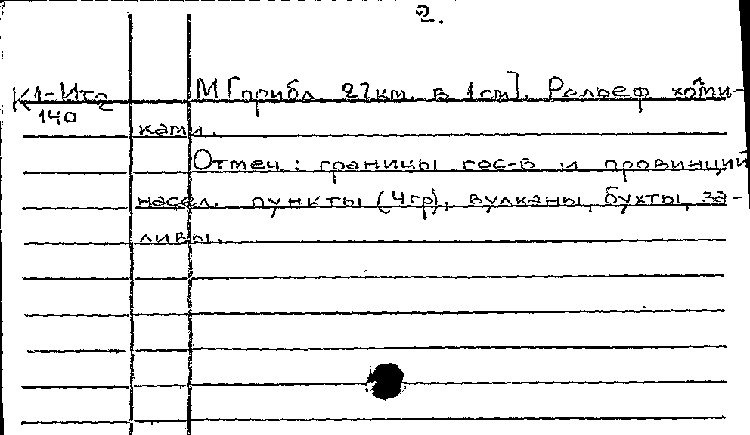 2.
К1-Ит2
140
М [прибл. 27км. в 1см]. Рельеф холми-
ками.
Отмеч.: границы гос-в и провинций
насел. пункты (4гр), вулканы, бухты, за-
ливы.